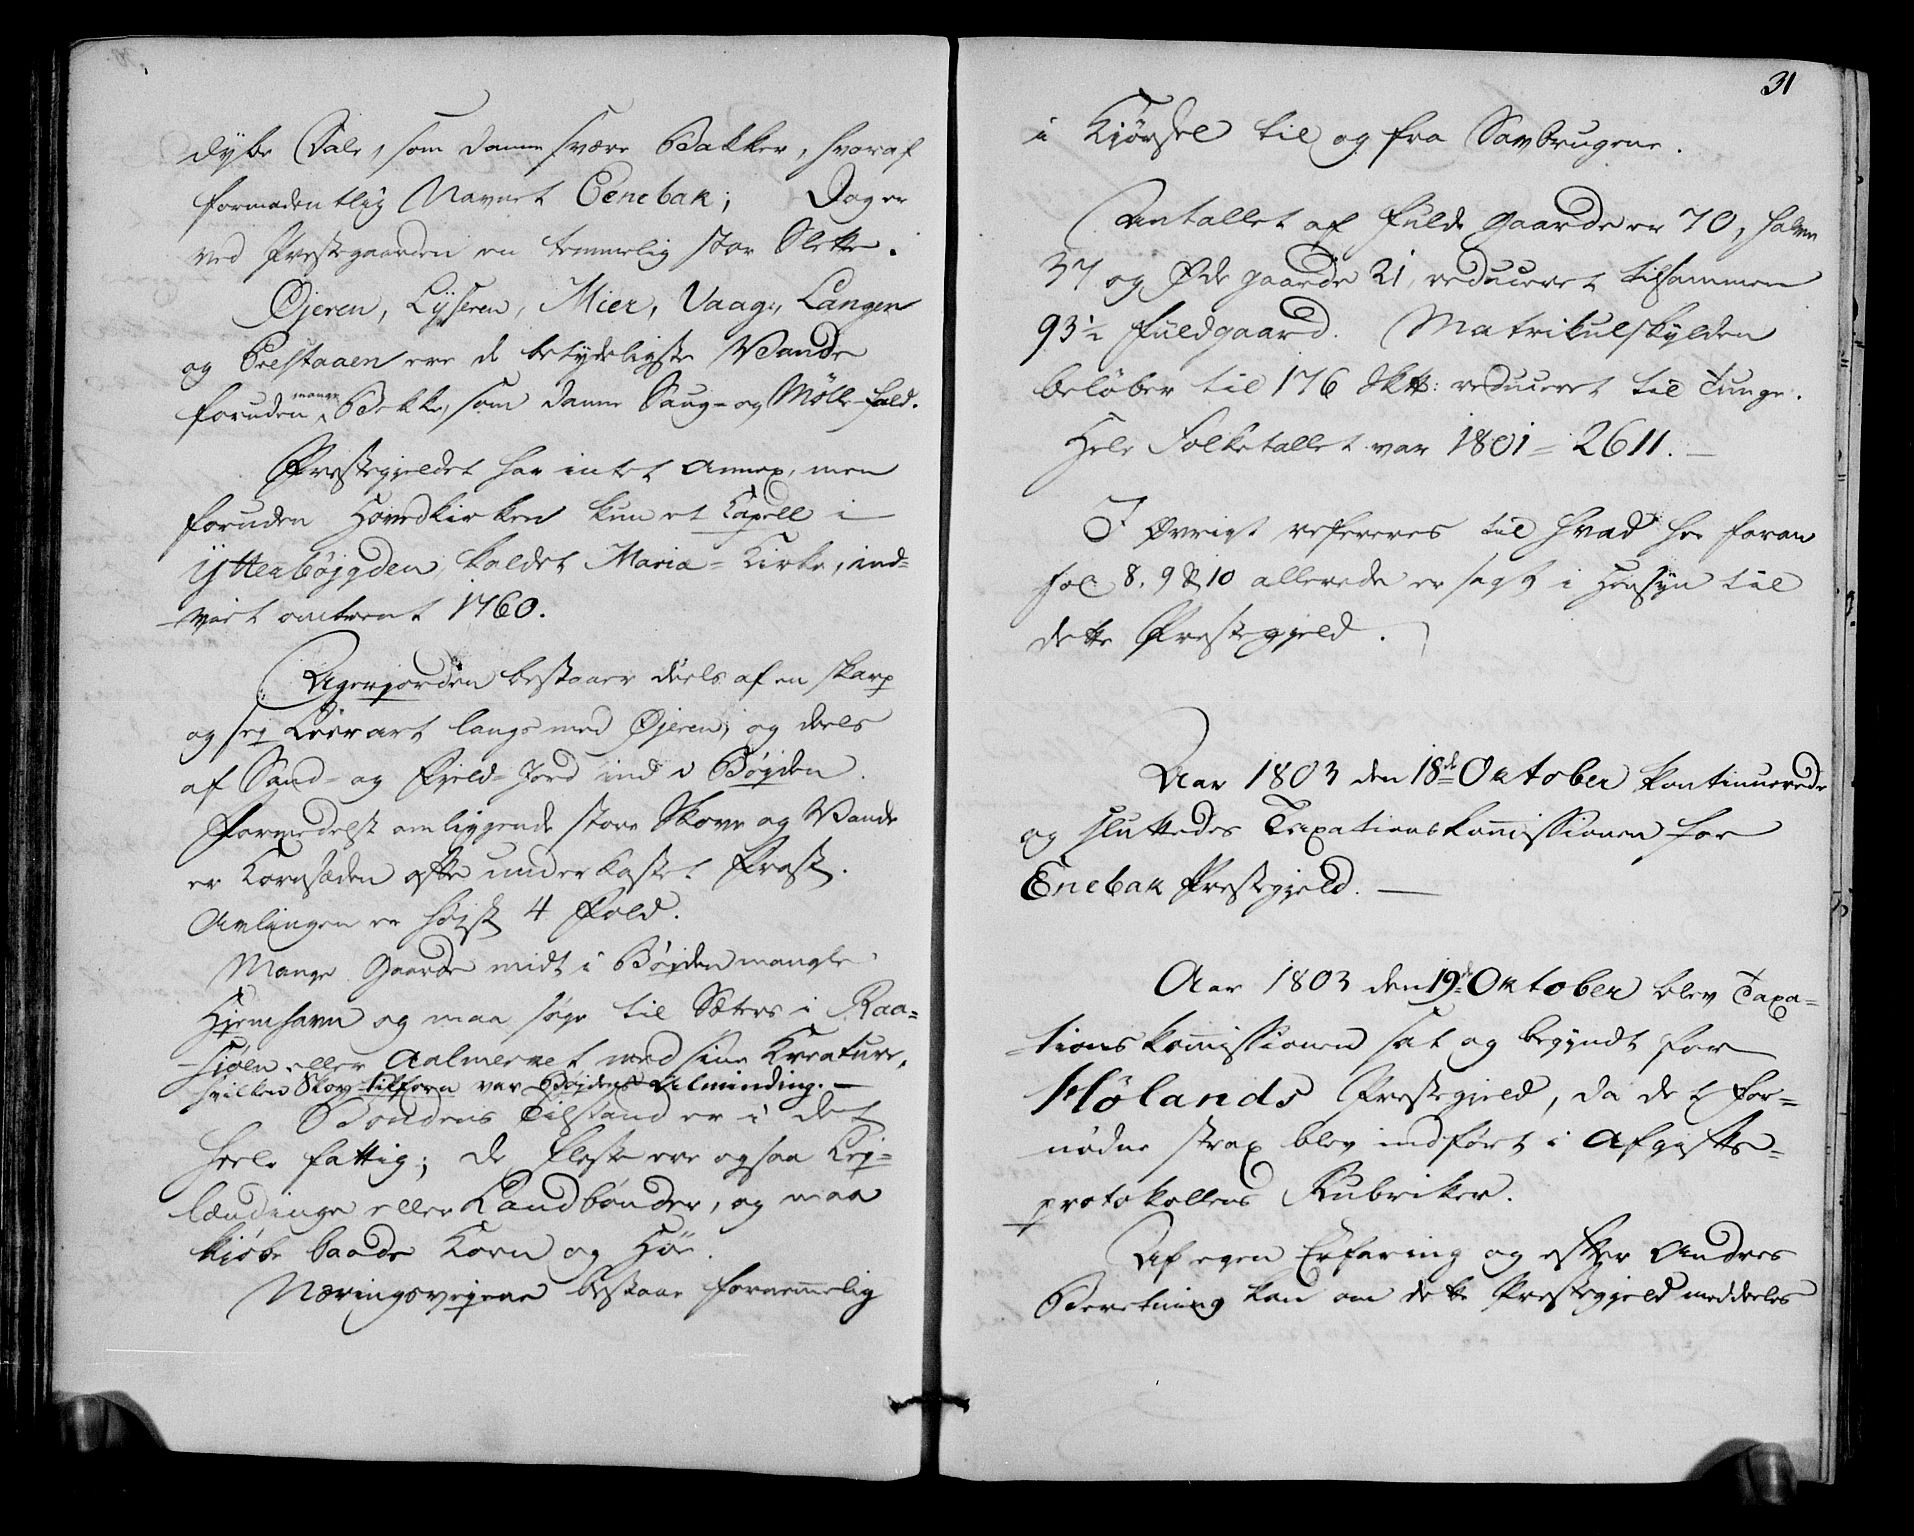 dybe Dale, som danne svære Bakker, hvoraf
formodentlig Navnet Eenebak; Dog er
ved Prestegaarden en temmelig stor Slette.
Øjeren, Lyseren, Mier, Vaag, Langen
og Bestaaen ere de betydeligste Vande
foruden mange Bekke, som danne Saug- og Mølle-fald.
Prestegjeldet har intet Annex, men
foruden Hovedkirken kun et Capell i
Ytterbøjgden kaldet Maria-Kirke, ind-
viet omtrent 1760.
Agerjorden bestaaer deels af en skarp
og sej Leerart langs med Øjeren, og deels
af Sand- og Fjeld-Jord ind i Bøjden.
Formedelst omliggende store Skove og Vande
er Kornsæden ofte underkastet Frost.
Avlingen er højst 4 Fold.
Mange Gaarde midt i Bøjden mangle
Hjemhavn og maa søge til Sætres i Raa-
sjøen eller Aalmerket med sine Kreature,
hvilken Skov tilforn var Bøjdens Alminding. —
Bondens Tilstand er i det
heele fattig; de fleste ere ogsaa Lej-
lændinge eller Landbønder, og maa
kjøbe baade Korn og Høe.
Næringsvejene bestaae fornemmelig
31
i Kjørsel til og fra Savbrugene.
Antallet af fulde Gaarde er 70, halve
37 og Øde gaarde 21, reduceret tilsammen
93½ fuldgaard. Matrikulskylden
beløber til 176 Sktt: reduceret til Tunge.
Hele Folketallet var 1801 = 2611. —
I Øvrigt refereres til hvad her foran
fol 8. 9 & 10 allerede er sagt i Hensyn til
dette Prestegjeld.
Aar 1803 den 18de Oktober kontinuerede
og sluttedes Taxationskommissionen for
Enebak Prestegjeld. —
Aar 1803 den 19de Oktober blev Taxa-
tionskommissionen sat og begyndt for
Hølands Prestegjeld, da det for-
nødne strax blev indført i Afgifts-
protokollens Rubriker.
Af egen Erfaring og efter Andres
Beretning kan om dette Prestegjeld meddeeles